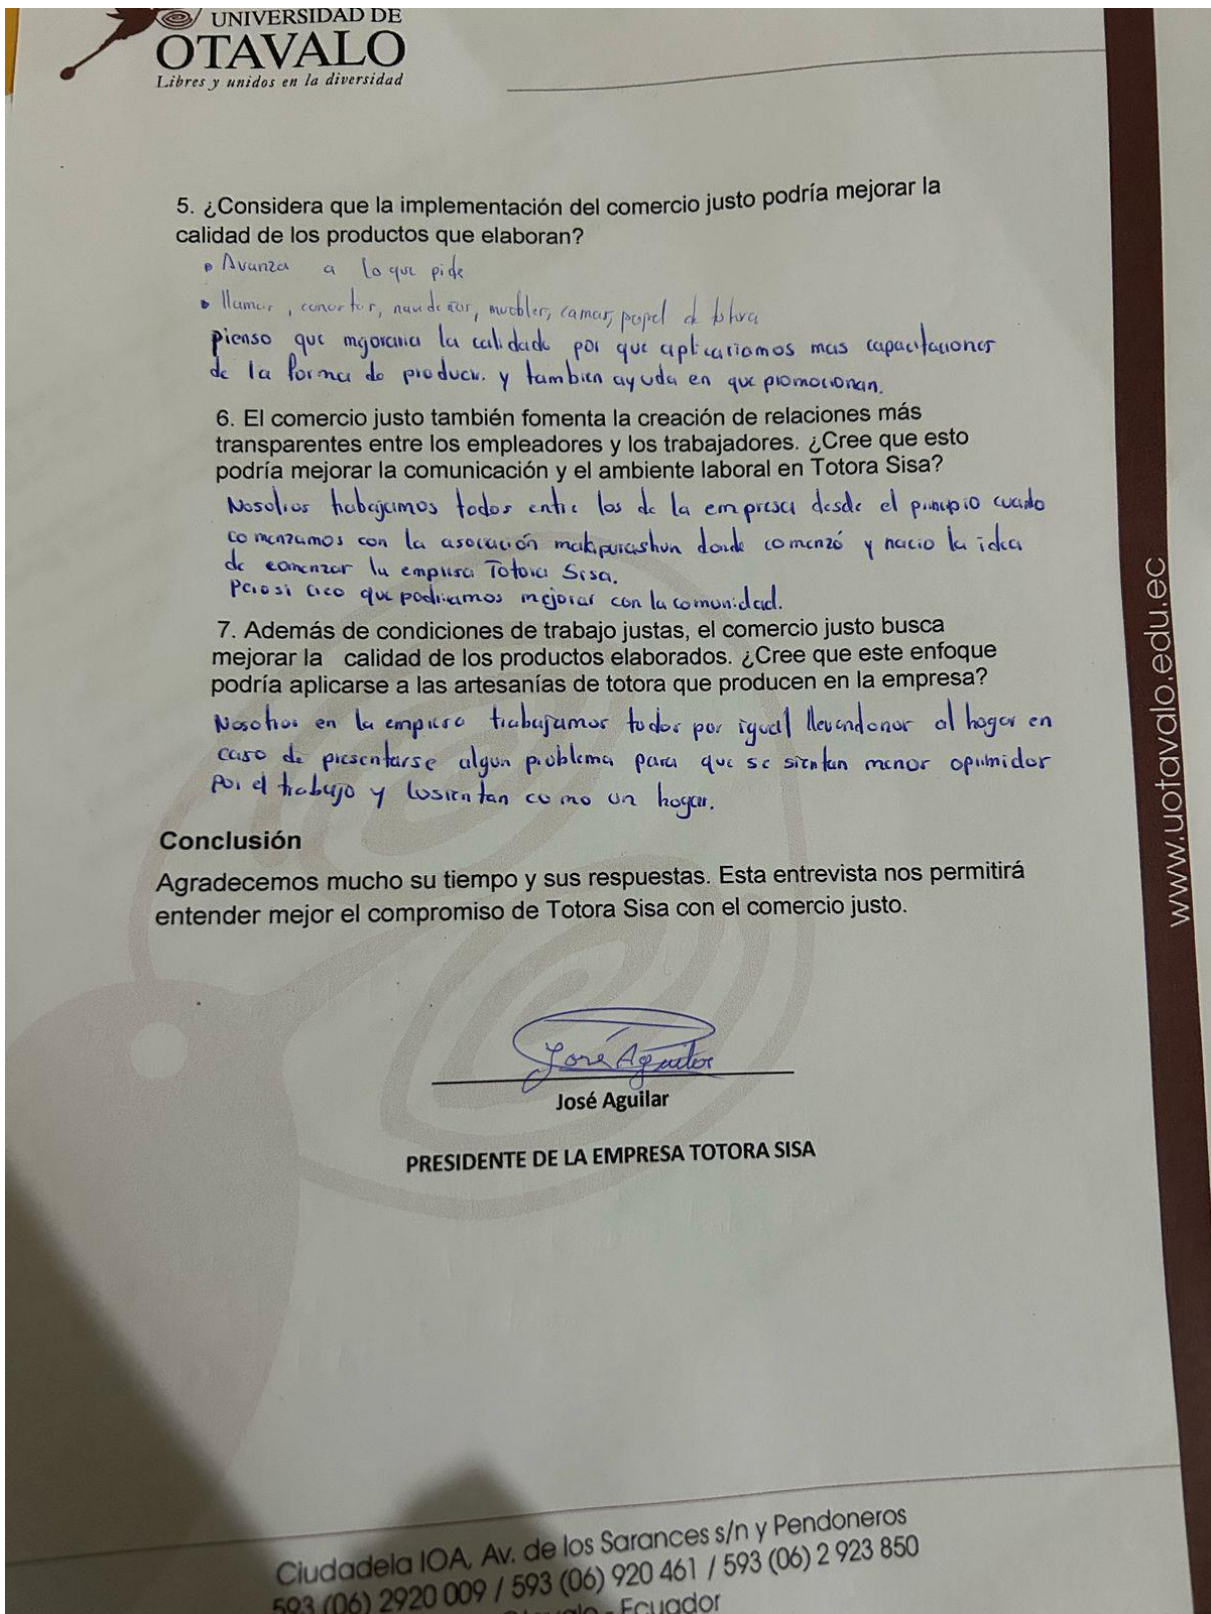 UNIVERSIDAD DE
OTAVALO
Libres y unidos en la diversidad
5. ¿Considera que la implementación del comercio justo podría mejorar la
calidad de los productos que elaboran?
• Avanza a lo que pide
• llamar, muebles, camas, papel d totora
pienso que mejoraria la calidade por que aplicariamos mas capacitaciones
de la forma de producir. y tambien ayuda en que promocionan.
6. El comercio justo también fomenta la creación de relaciones más
transparentes entre los empleadores y los trabajadores. ¿Cree que esto
podría mejorar la comunicación y el ambiente laboral en Totora Sisa?
Nosotros trabajamos todos entre los de la empresa desde el principio cuando
comenzamos con la asociación makipurashun donde comenzó y nacio la idea
de comenzar la empresa Totora Sisa.
Pero si creo que podriamos mejorar con la comunidad.
7. Además de condiciones de trabajo justas, el comercio justo busca
mejorar la calidad de los productos elaborados. ¿Cree que este enfoque
podría aplicarse a las artesanías de totora que producen en la empresa?
Nosotros en la empresa trabajamos todos por igual llevandonos al hogar en
caso de presentarse algun problema para que se sientan menos oprimidos
por el trabajo y lo sientan como un hogar.
Conclusión
Agradecemos mucho su tiempo y sus respuestas. Esta entrevista nos permitirá
entender mejor el compromiso de Totora Sisa con el comercio justo.
José Aguilar
José Aguilar
PRESIDENTE DE LA EMPRESA TOTORA SISA
www.uotavalo.edu.ec
Ciudadela IOA, Av. de los Sarances s/n y Pendoneros
593 (06) 2920 009 / 593 (06) 920 461 / 593 (06) 2 923 850
Otavalo - Ecuador